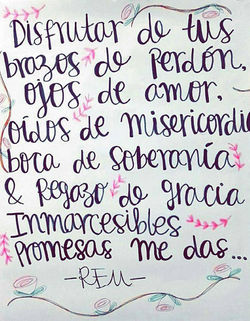 Disfrutar de tus
brazos de perdón,
ojos de amor,
oídos de misericordia
boca de soberanía
& Regazo de gracia
Inmarcesibles
Promesas me das...
-REM-